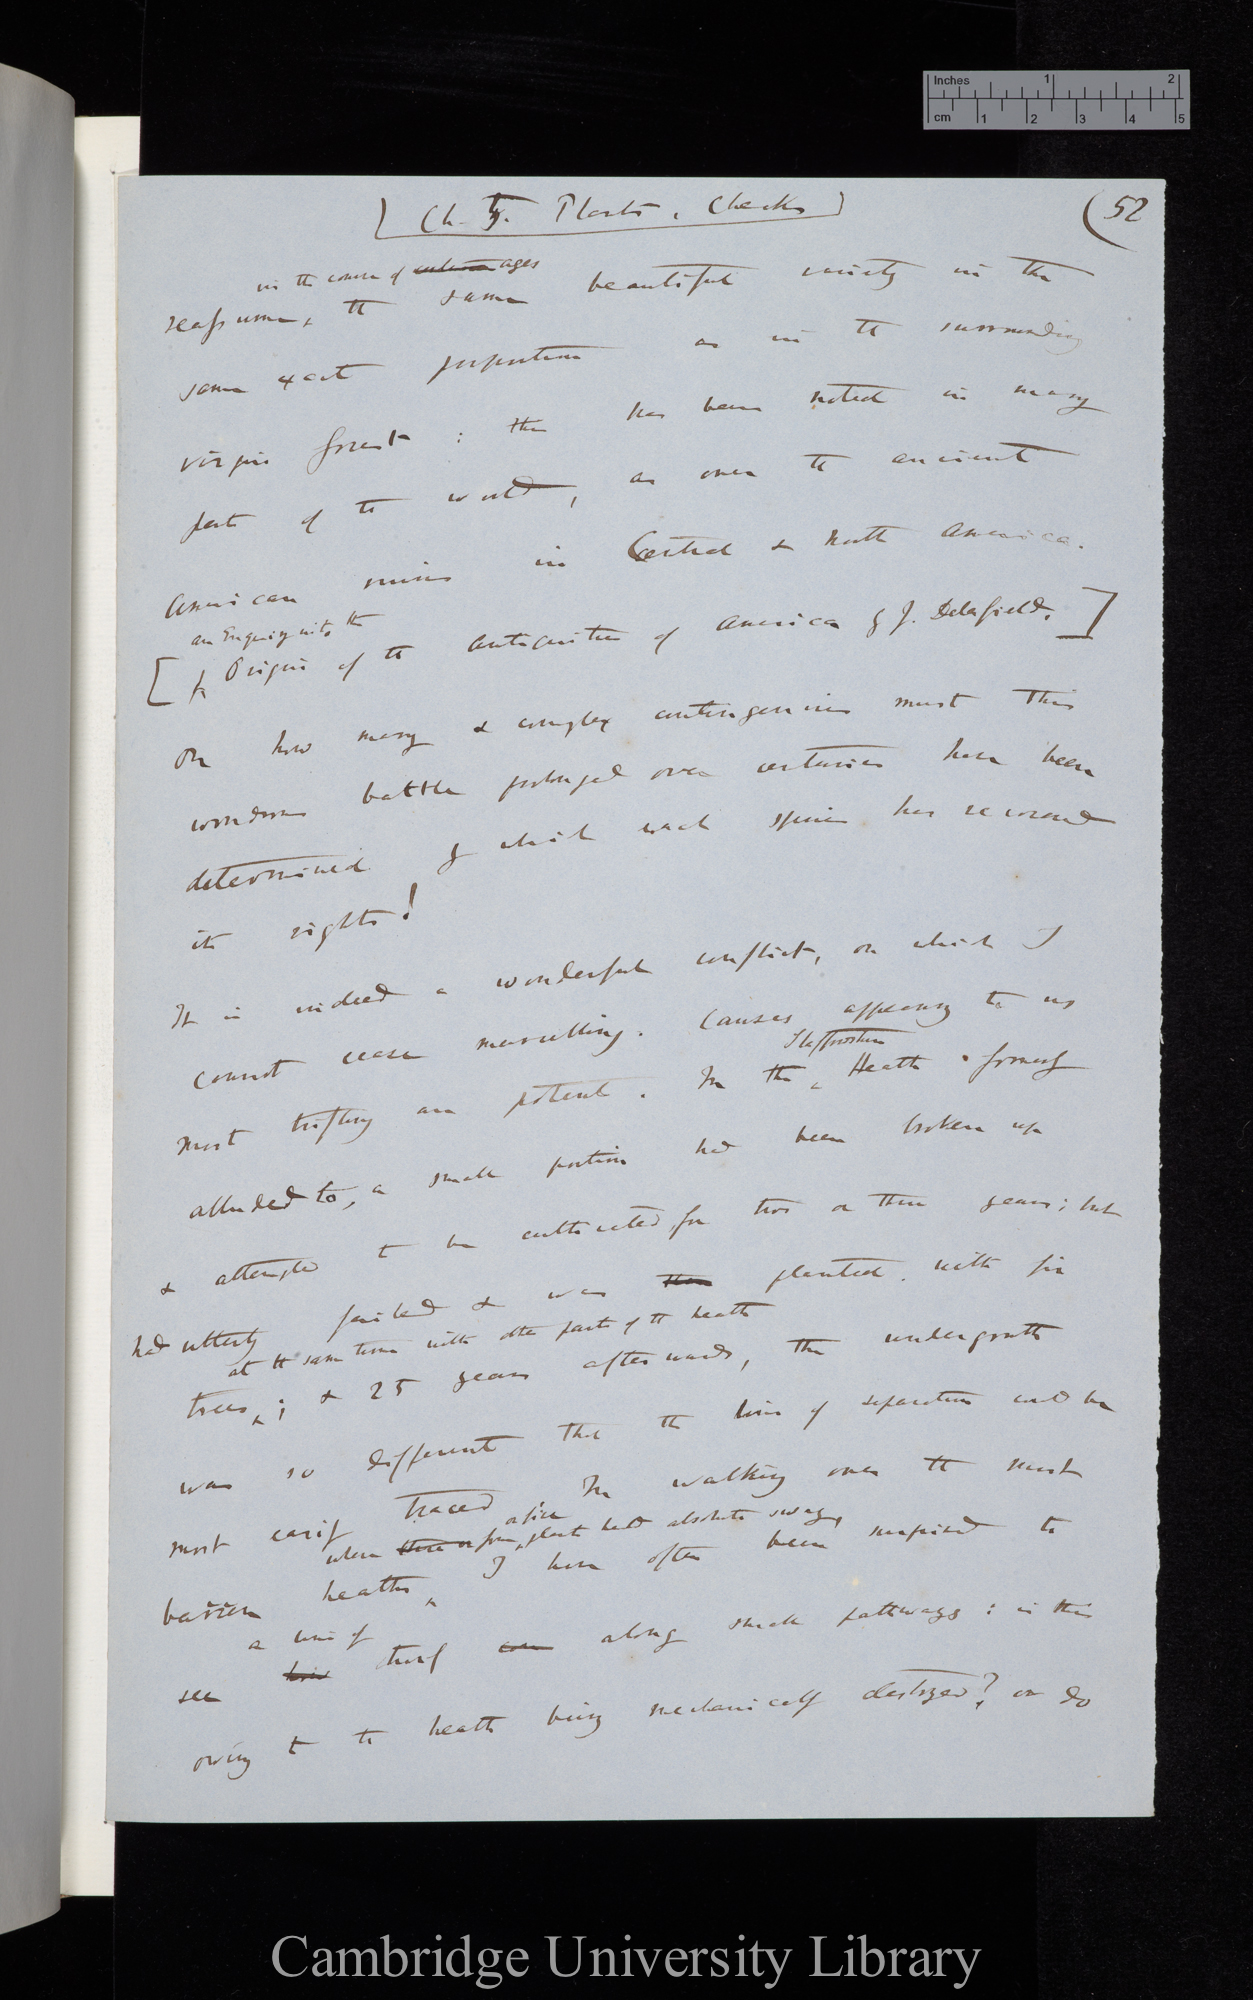 Inches 1 2
cm 1 2 3 4 5
[Ch. 5. Plants, Checks] (52
in the course of ages
reassume, the same beautiful variety in the
same exact proportions as in the surrounding
virgin forest: this has been noted in many
parts of the world, as over the ancient
American ruins in Central & North America.
an Enquiry into the
[ Origin of the Antiquities of America by J. Delafield.]
On how many & complex contingencies must this
wondrous battle prolonged over centuries have been
determined by which each species has recovered
its rights!
It is indeed a wonderful conflict, on which I
cannot cease marvelling. Causes appearing to us
Staffordshire
most trifling are potent. In the Heath formerly
alluded to, a small portion had been broken up
& attempted to be cultivated, for two or three years; but
had utterly failed & was then planted with fir
at the same time with other parts of the heath
trees; & 25 years afterwards, the undergrowth
was so different that the line of separation could be
most easily traced In walking over the most
where three or four plants had absolute sway,
barren heaths, I have often been surprised to
a line of
see turf along small pathways: is this
owing to the heath being mechanically destroyed? or do
Cambridge University Library